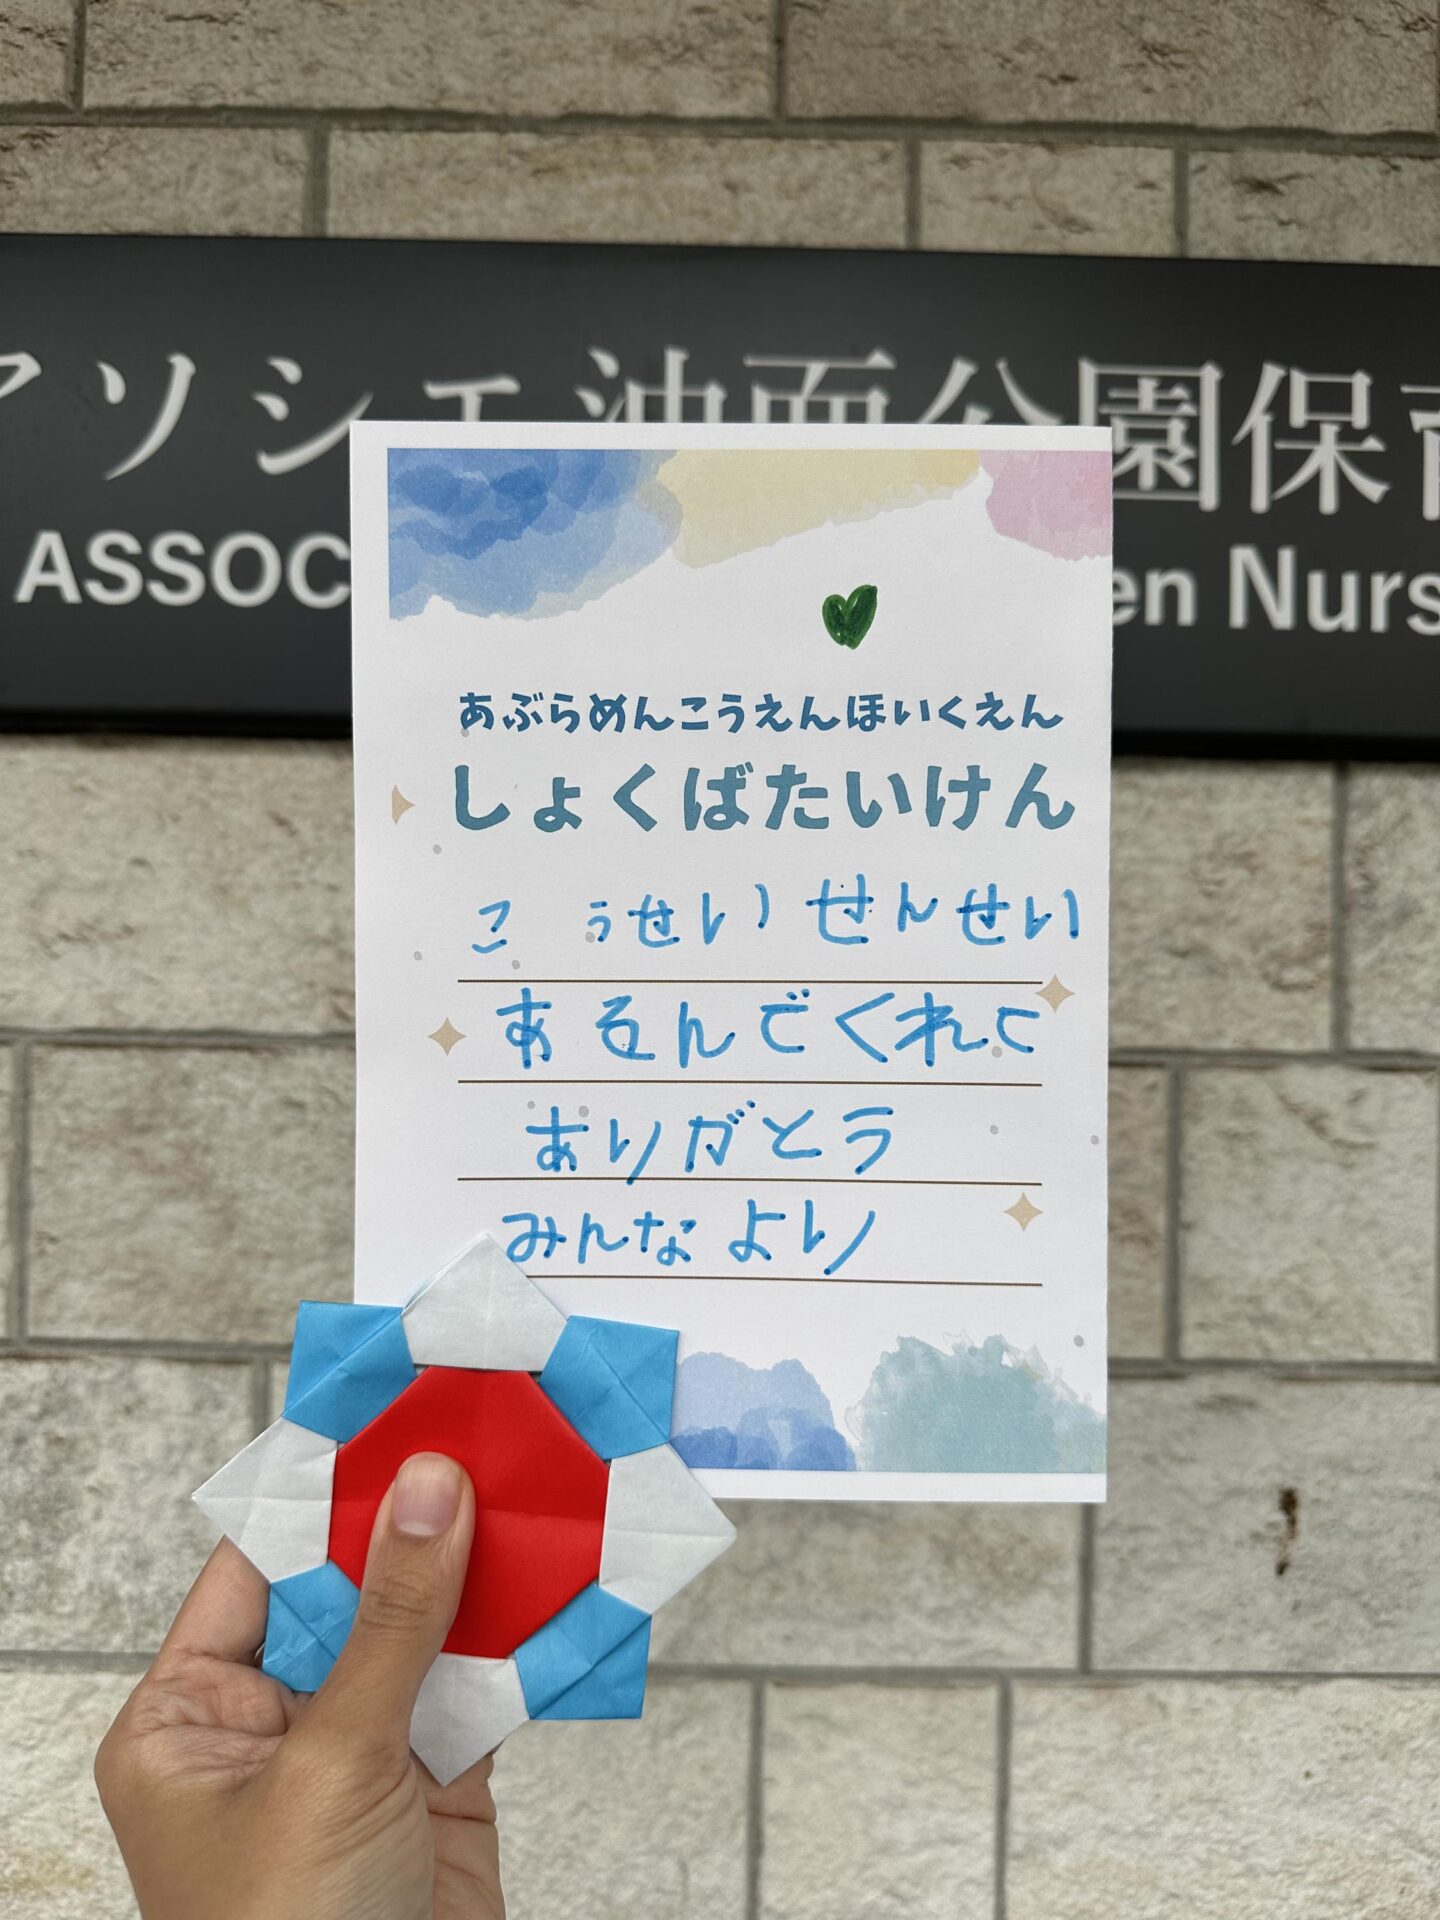 アソシエ油面公園保育
ASSOC
en Nurs
あぶらめんこうえんほいくえん
しょくばたいけん
こうせいせんせい
あそんでくれて
ありがとう
みんなより